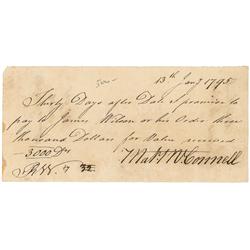 500-
13th Jany 1795
Thirty Days after Date I promise to
pay to James Wilson or his Order three
thousand Dollars for Value received
-3000 Drs Matt McConnell